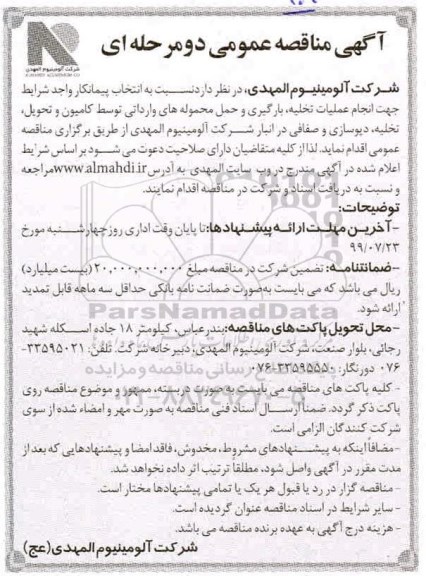 شرکت آلومینیوم المهدی
ALMAHDI ALUMINIUM CO
آگهی مناقصه عمومی دو مرحله ای
شرکت آلومینیوم المهدی، در نظر دارد نسبت به انتخاب پیمانکار واجد شرایط
جهت انجام عملیات تخلیه، بارگیری و حمل محموله های وارداتی توسط کامیون و تحویل،
تخلیه، دپوسازی و صفافی در انبار شرکت آلومینیوم المهدی از طریق برگزاری مناقصه
عمومی اقدام نماید. لذا از کلیه متقاضیان دارای صلاحیت دعوت می شود بر اساس شرایط
اعلام شده در آگهی مندرج در وب سایت المهدی به آدرس www.almahdi.ir مراجعه
و نسبت به دریافت اسناد و شرکت در مناقصه اقدام نمایند.
توضیحات:
-آخرین مهلت ارائه پیشنهادها: تا پایان وقت اداری روز چهارشنبه مورخ
۹۹/۰۷/۲۳
--ضمانتنامه: تضمین شرکت در مناقصه مبلغ ۲۰,۰۰۰,۰۰۰,۰۰۰ (بیست میلیارد)
ریال می باشد که می بایست به صورت ضمانت نامه بانکی حداقل سه ماهه قابل تمدید
ارائه شود.
-محل تحویل پاکت های مناقصه: بندرعباس، کیلومتر ۱۸ جاده اسکله شهید
رجائی، بلوار صنعت، شرکت آلومینیوم المهدی، دبیرخانه شرکت. تلفن: ۳۳۵۹۵۰۲۱-
۰۷۶ دورنگار: ۳۳۵۹۵۵۵۰-۰۷۶
- کلیه پاکت های مناقصه می بایست به صورت در بسته، ممهور و موضوع مناقصه روی
پاکت ذکر گردد. ضمنا ارسال اسناد فنی مناقصه به صورت مهر و امضاء شده از سوی
شرکت کنندگان الزامی است.
-مضافاً اینکه به پیشنهادهای مشروط، مخدوش، فاقد امضا و پیشنهادهایی که بعد از
مدت مقرر در آگهی واصل شود، مطلقاً ترتیب اثر داده نخواهد شد.
-مناقصه گزار در رد یا قبول هر یک یا تمامی پیشنهادها مختار است.
- سایر شرایط در اسناد مناقصه عنوان گردیده است.
- هزینه درج آگهی به عهده برنده مناقصه می باشد.
شرکت آلومینیوم المهدی (عج)
ParsNamadData